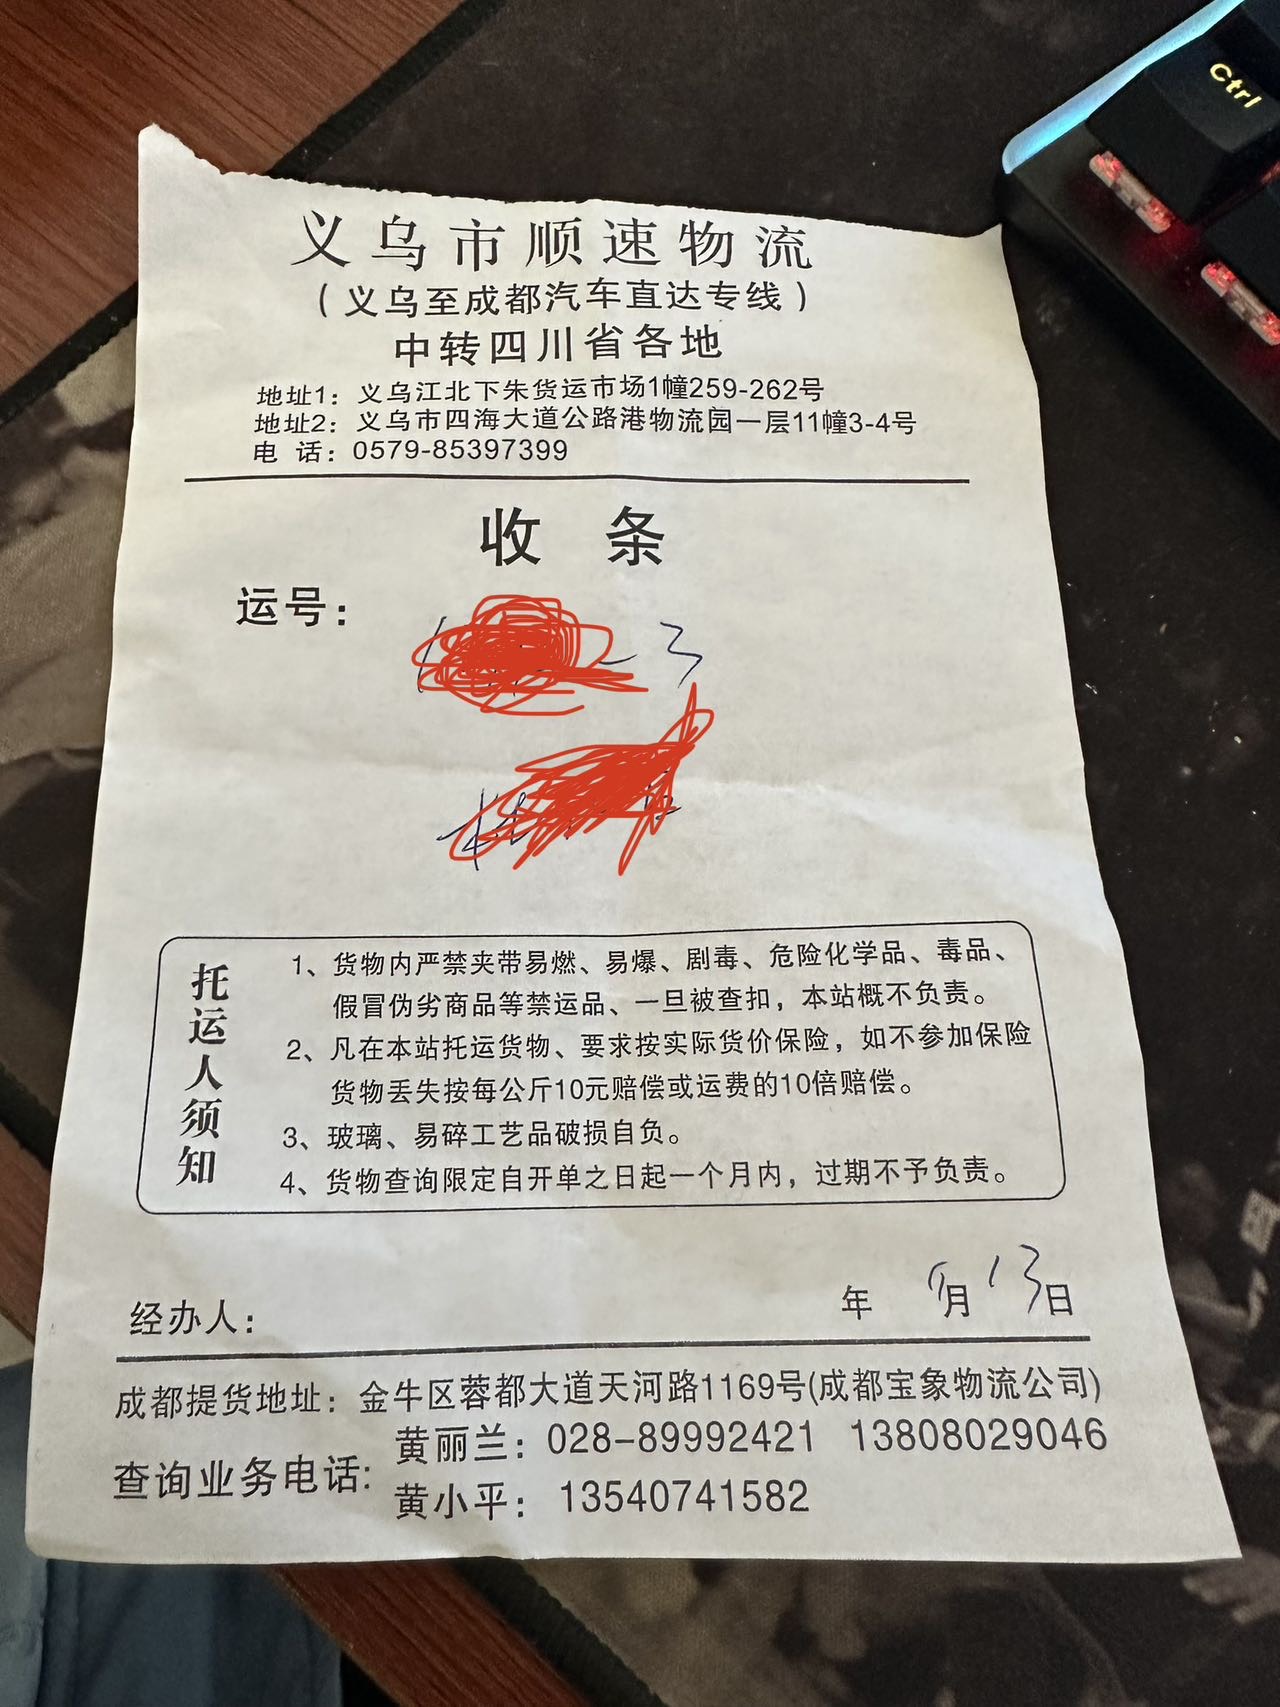 Ctrl
义乌市顺速物流
（义乌至成都汽车直达专线）
中转四川省各地
地址1：义乌江北下朱货运市场1幢259-262号
地址2：义乌市四海大道公路港物流园一层11幢3-4号
电 话：0579-85397399
收 条
运号：
-3
托运人须知
1、货物内严禁夹带易燃、易爆、剧毒、危险化学品、毒品、
假冒伪劣商品等禁运品、一旦被查扣，本站概不负责。
2、凡在本站托运货物、要求按实际货价保险，如不参加保险
货物丢失按每公斤10元赔偿或运费的10倍赔偿。
3、玻璃、易碎工艺品破损自负。
4、货物查询限定自开单之日起一个月内，过期不予负责。
经办人： 年 月13日
成都提货地址：金牛区蓉都大道天河路1169号(成都宝象物流公司)
查询业务电话:
黄丽兰：028-89992421 13808029046
黄小平：13540741582